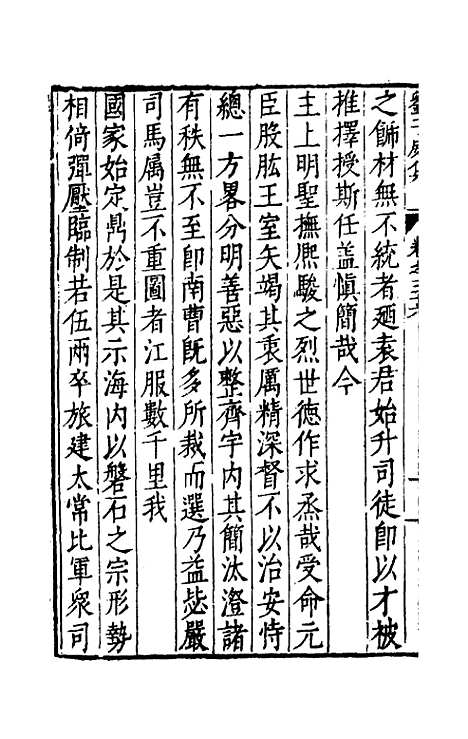 之飾材無不統者廼袁君始升司徒卽以才被
推擇授斯任盖愼簡哉今
主上明聖撫熈駿之烈世德作求烝哉受命元
臣股肱王室矢竭其衷厲精深督不以治安恃
緫一方畧分明善惡以整齊宇内其簡汰澄諸
有秩無不至卽南曹旣多所裁而選乃益毖嚴
司馬属豈不重圖者江服數千里我
國家始定鼎於是其示海内以磐石之宗形勢
相倚彈壓臨制若伍兩卒旅建太常比軍衆司